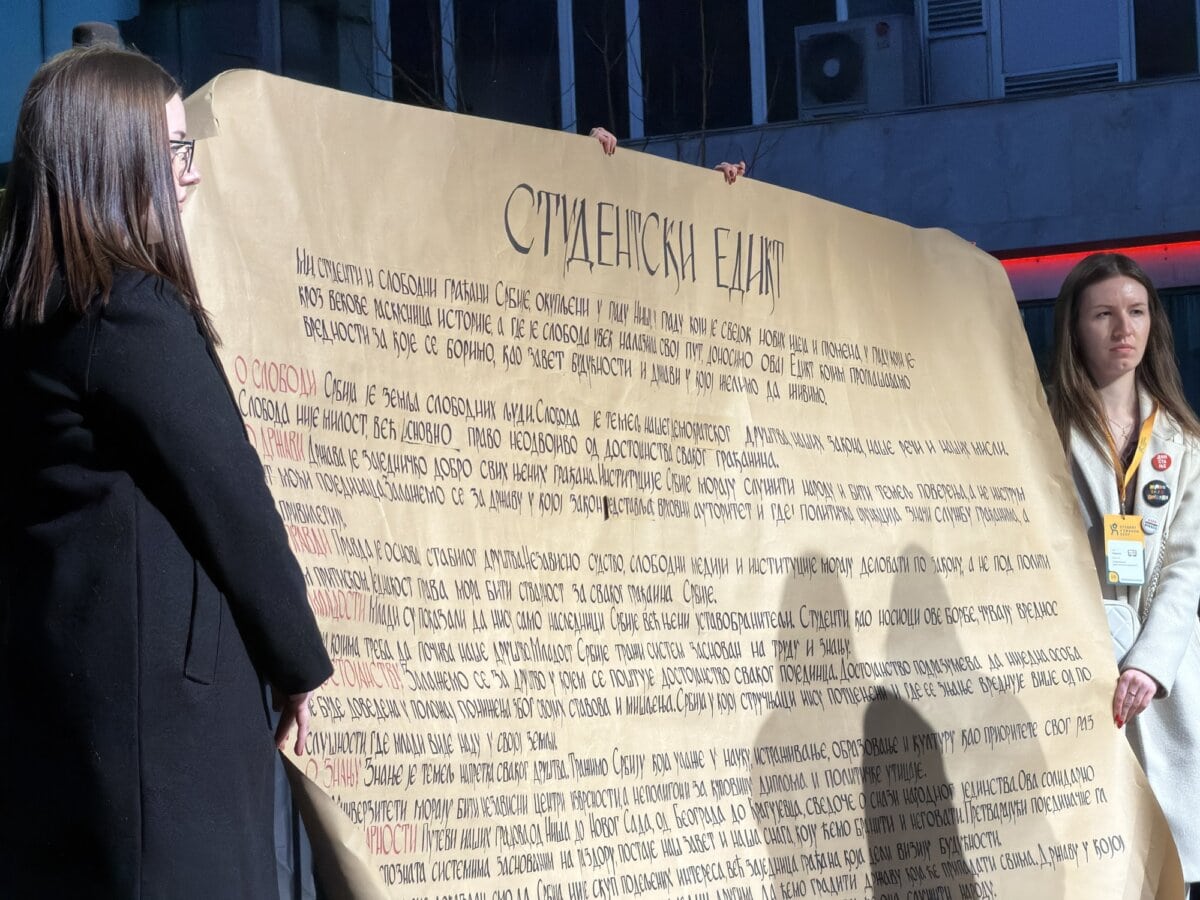 СТУДЕНТСКИ ЕДИКТ
МИ, СТУДЕНТИ И СЛОБОДНИ ГРАЂАНИ СРБИЈЕ, ОКУПЉЕНИ У ГРАДУ НИШУ, ГРАДУ КОЈИ ЈЕ СВЕДОК НОВИХ ИДЕЈА И ПРОМЕНА, У ГРАДУ КОЈИ ЈЕ
КРОЗ ВЕКОВЕ РАСКРСНИЦА ИСТОРИЈЕ, А ГДЕ ЈЕ СЛОБОДА УВЕК НАЛАЗИЛА СВОЈ ПУТ, ДОНОСИМО ОВАЈ ЕДИКТ КОЈИМ ПРОГЛАШАВАМО
ВРЕДНОСТИ ЗА КОЈЕ СЕ БОРИМО, КАО ЗАВЕТ БУДУЋНОСТИ И ДРЖАВИ У КОЈОЈ ЖЕЛИМО ДА ЖИВИМО.
О СЛОБОДИ СРБИЈА ЈЕ ЗЕМЉА СЛОБОДНИХ ЉУДИ. СЛОБОДА ЈЕ ТЕМЕЉ НАШЕГ ДЕМОКРАТСКОГ ДРУШТВА, НАШИХ ЗАКОНА, НАШЕ РЕЧИ И НАШИХ МИСЛИ.
СЛОБОДА НИЈЕ МИЛОСТ, ВЕЋ ОСНОВНО ПРАВО НЕОДВОЈИВО ОД ДОСТОЈАНСТВА СВАКОГ ГРАЂАНИНА.
О ДРЖАВИ ДРЖАВА ЈЕ ЗАЈЕДНИЧКО ДОБРО СВИХ ЊЕНИХ ГРАЂАНА. ИНСТИТУЦИЈЕ СРБИЈЕ МОРАЈУ СЛУЖИТИ НАРОДУ И БИТИ ТЕМЕЉ ПОВЕРЕЊА, А НЕ ИНСТРУМ
Т МОЋИ ПОЈЕДИНАЦА. ЗАЛАЖЕМО СЕ ЗА ДРЖАВУ У КОЈОЈ ЗАКОН ПРЕДСТАВЉА ВРХОВНИ АУТОРИТЕТ И ГДЕ ПОЛИТИЧКА ФУНКЦИЈА ЗНАЧИ СЛУЖБУ ГРАЂАНИМА, А
ПРИВИЛЕГИЈУ.
ПРАВДИ ПРАВДА ЈЕ ОСНОВА СТАБИЛНОГ ДРУШТВА. НЕЗАВИСНО СУДСТВО, СЛОБОДНИ МЕДИЈИ И ИНСТИТУЦИЈЕ МОРАЈУ ДЕЛОВАТИ ПО ЗАКОНУ, А НЕ ПОД ПОЛИТИ
М ПРИТИСКОМ. ЈЕДНАКОСТ ПРАВА МОРА БИТИ СТВАРНОСТ ЗА СВАКОГ ГРАЂАНИНА СРБИЈЕ.
МЛАДОСТИ МЛАДИ СУ ПОКАЗАЛИ ДА НИСУ САМО НАСЛЕДНИЦИ СРБИЈЕ ВЕЋ ЊЕНИ УСТАВОБРАНИТЕЉИ. СТУДЕНТИ, КАО НОСИОЦИ ОВЕ БОРБЕ, ЧУВАЈУ ВРЕДНОС
КОЈИМА ТРЕБА ДА ПОЧИВА НАШЕ ДРУШТВО. МЛАДОСТ СРБИЈЕ ТРАЖИ СИСТЕМ ЗАСНОВАН НА ТРУДУ И ЗНАЊУ.
ДОСТОЈАНСТВУ ЗАЛАЖЕМО СЕ ЗА ДРУШТВО У КОЈЕМ СЕ ПОШТУЈЕ ДОСТОЈАНСТВО СВАКОГ ПОЈЕДИНЦА. ДОСТОЈАНСТВО ПОДРАЗУМЕВА ДА НИЈЕДНА ОСОБА
Е БУДЕ ДОВЕДЕНА У ПОЛОЖАЈ ПОНИЖЕЊА ЗБОГ СВОЈИХ СТАВОВА И МИШЉЕЊА. СРБИЈА У КОЈОЈ СТРУЧЊАЦИ НИСУ ПОТЦЕЊЕНИ И ГДЕ СЕ ЗНАЊЕ ВРЕДНУЈЕ ВИШЕ ОД ПО
СЛУШНОСТИ, ГДЕ МЛАДИ ВИДЕ НАДУ У СВОЈОЈ ЗЕМЉИ.
О ЗНАЊУ ЗНАЊЕ ЈЕ ТЕМЕЉ НАПРЕТКА СВАКОГ ДРУШТВА. ТРАЖИМО СРБИЈУ КОЈА УЛАЖЕ У НАУКУ, ИСТРАЖИВАЊЕ, ОБРАЗОВАЊЕ И КУЛТУРУ КАО ПРИОРИТЕТЕ СВОГ РАЗ
УНИВЕРЗИТЕТИ МОРАЈУ БИТИ НЕЗАВИСНИ ЦЕНТРИ ИЗВРСНОСТИ, А НЕ ПОЛИГОНИ ЗА КУПОВИНУ ДИПЛОМА И ПОЛИТИЧКЕ УТИЦАЈЕ.
АРНОСТИ ПУТЕВИ НАШИХ ГРАДОВА, ОД НИША ДО НОВОГ САДА, ОД БЕОГРАДА ДО КРАГУЈЕВЦА, СВЕДОЧЕ О СНАЗИ НАРОДНОГ ЈЕДИНСТВА. ОВА СОЛИДАРНО
СПОЗНАТА СИСТЕМИМА ЗАСНОВАНИМ НА РАЗДОРУ ПОСТАЈЕ НАШ ЗАВЕТ И НАША СНАГА, КОЈУ ЋЕМО БРАНИТИ И НЕГОВАТИ. ПРЕТВАРАЈУЋИ ПОЈЕДИНАЧНЕ ГЛ
ДА СРБИЈА НИЈЕ СКУП ПОДЕЉЕНИХ ИНТЕРЕСА, ВЕЋ ЗАЈЕДНИЦА ГРАЂАНА КОЈА ДЕЛИ ВИЗИЈУ БУДУЋНОСТИ.
ДРУГИМА ДА ЋЕМО ГРАДИТИ ДРЖАВУ КОЈА ЋЕ ПРИПАДАТИ СВИМА. ДРЖАВУ У КОЈОЈ
СЛУЖИТИ НАРОДУ.